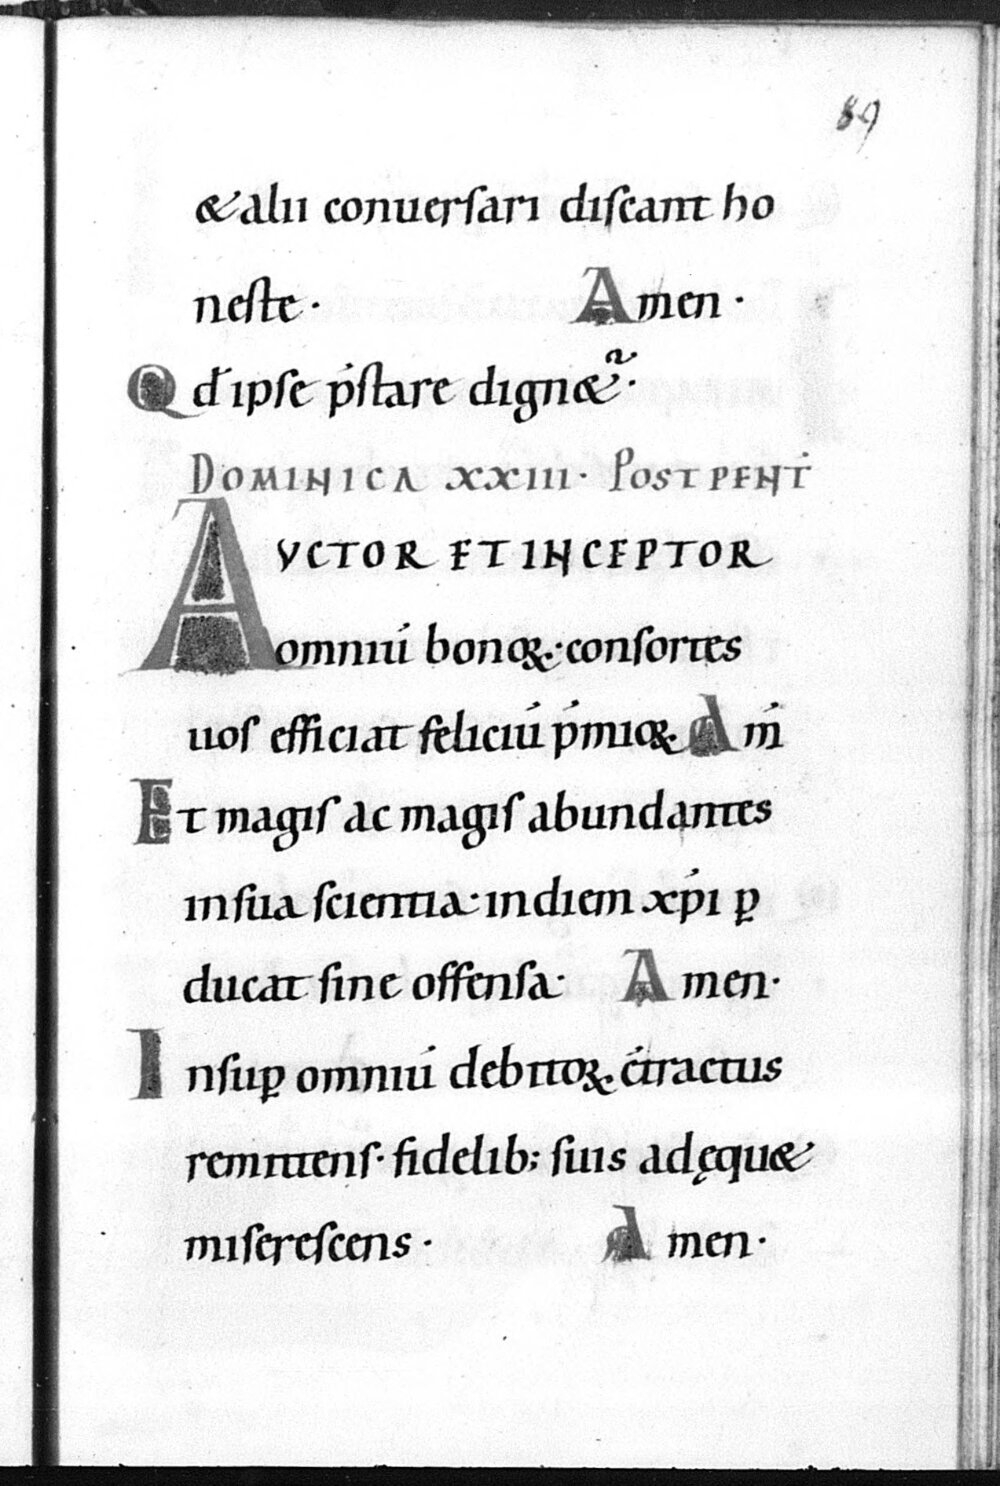 89
&alii conuersari discant ho
neste· Amen·
Qđ ipse p̄stare dign&ᷣ·
DOMINICA XXIII· POST PENT̄
AVCTOR ET INCEPTOR
omniū bonoꝝ· consortes
uos efficiat feliciū p̄mioꝝ Am̄
Et magis ac magis abundantes
in sua scientia· in diem xp̄i ꝑ
ducat sine offensa· Amen·
Insuꝑ omniū debitoꝝ c̄tractus
remittens· fidelib; suis adęqu&
miserescens· Amen·